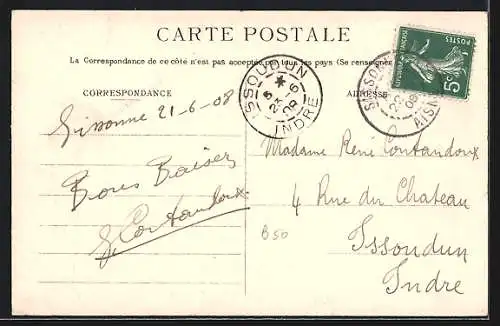 CARTE POSTALE
La Correspondance de ce côté n'est pas acceptée par tous les pays (Se renseigner
CORRESPONDANCE
ADRESSE
ISSOUDUN
INDRE
SISSON
22
08
AISNE
POSTES
5c
Sissonne 21-6-08
Bons Baisers
Coutandoux
Madame René Coutandoux
4 Rue du Chateau
B50
Issoudun
Indre